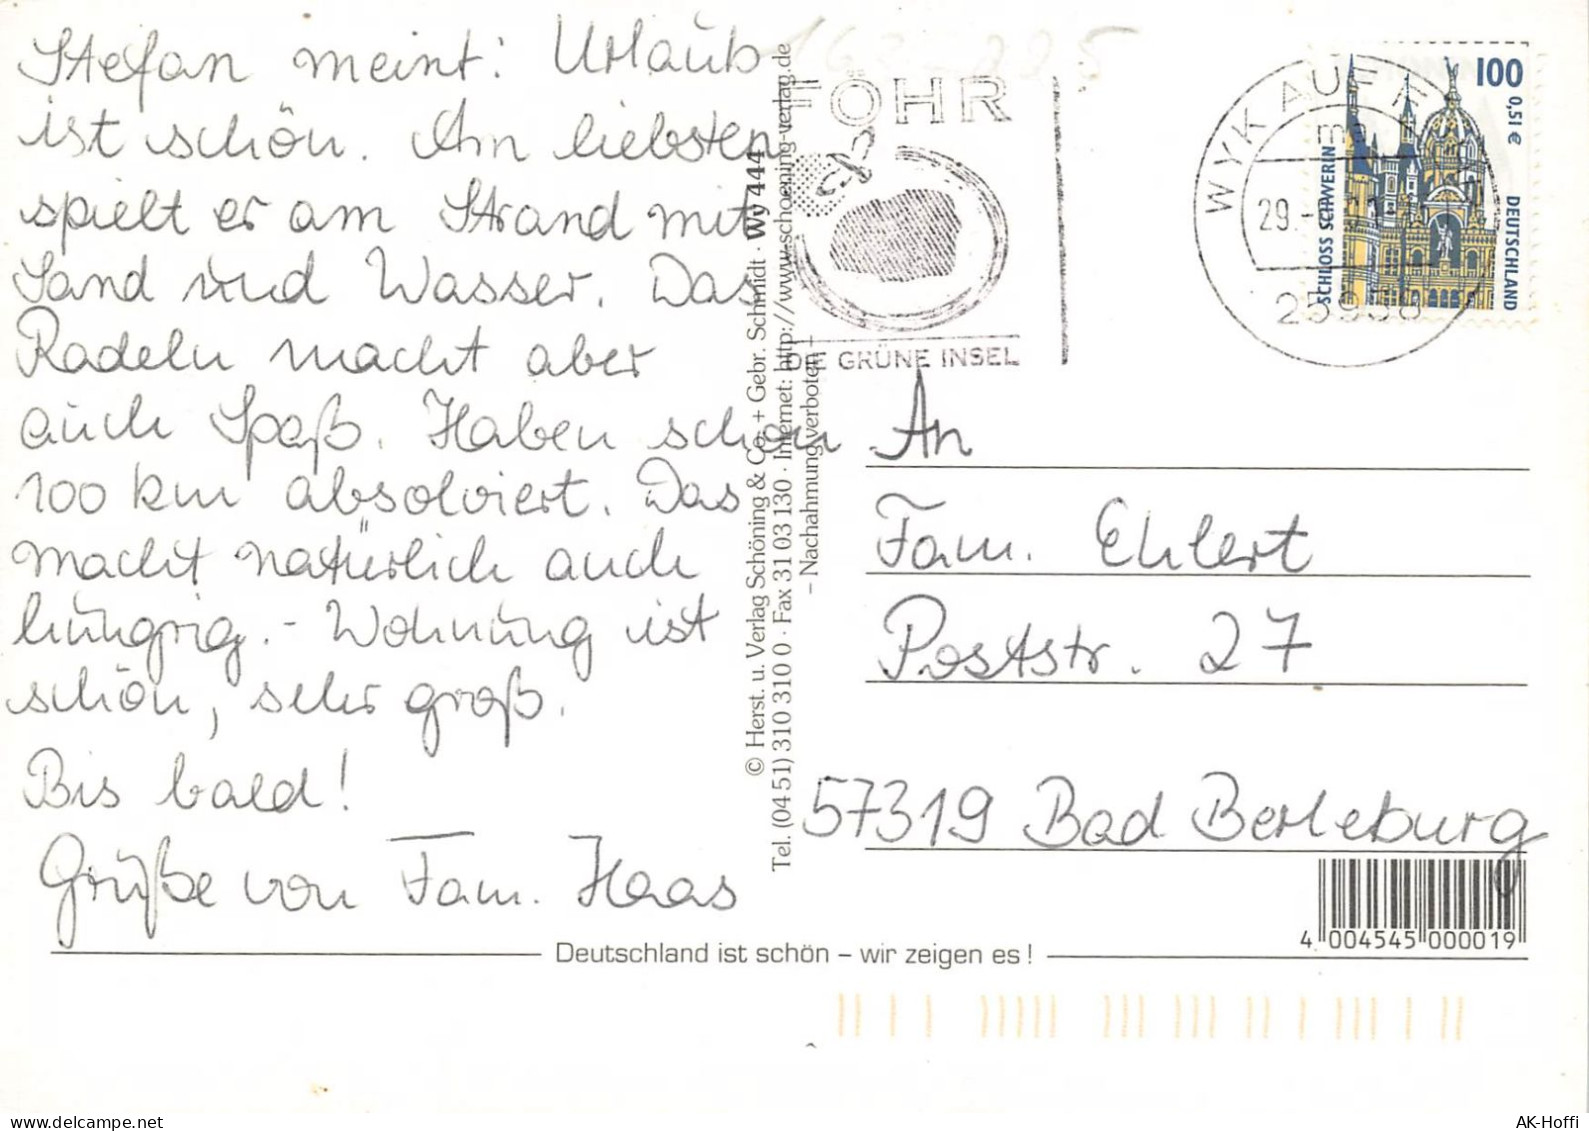 Stefan meint: Urlaub
ist schön. Am liebsten
spielt er am Strand mit
Sand und Wasser. Das
Radeln macht aber
auch Spaß. Haben schon
100 km absolviert. Das
macht natürlich auch
hungrig. - Wohnung ist
schön, sehr groß.
Bis bald!
Grüße von Fam. Haas
© Herst. u. Verlag Schöning & Co. + Gebr. Schmidt · Wy 444
Tel. (04 51) 310 310 0 · Fax 31 03 130 · Internet: http://www.schoening-verlag.de
– Nachahmung verboten –
FÖHR
DIE GRÜNE INSEL
WYK AUF
29.
25938
100
0,51 €
SCHLOSS SCHWERIN
DEUTSCHLAND
An
Fam. Ehlert
Poststr. 27
57319 Bad Berleburg
4 004545 000019
Deutschland ist schön – wir zeigen es !
www.delcampe.net
AK-Hoffi